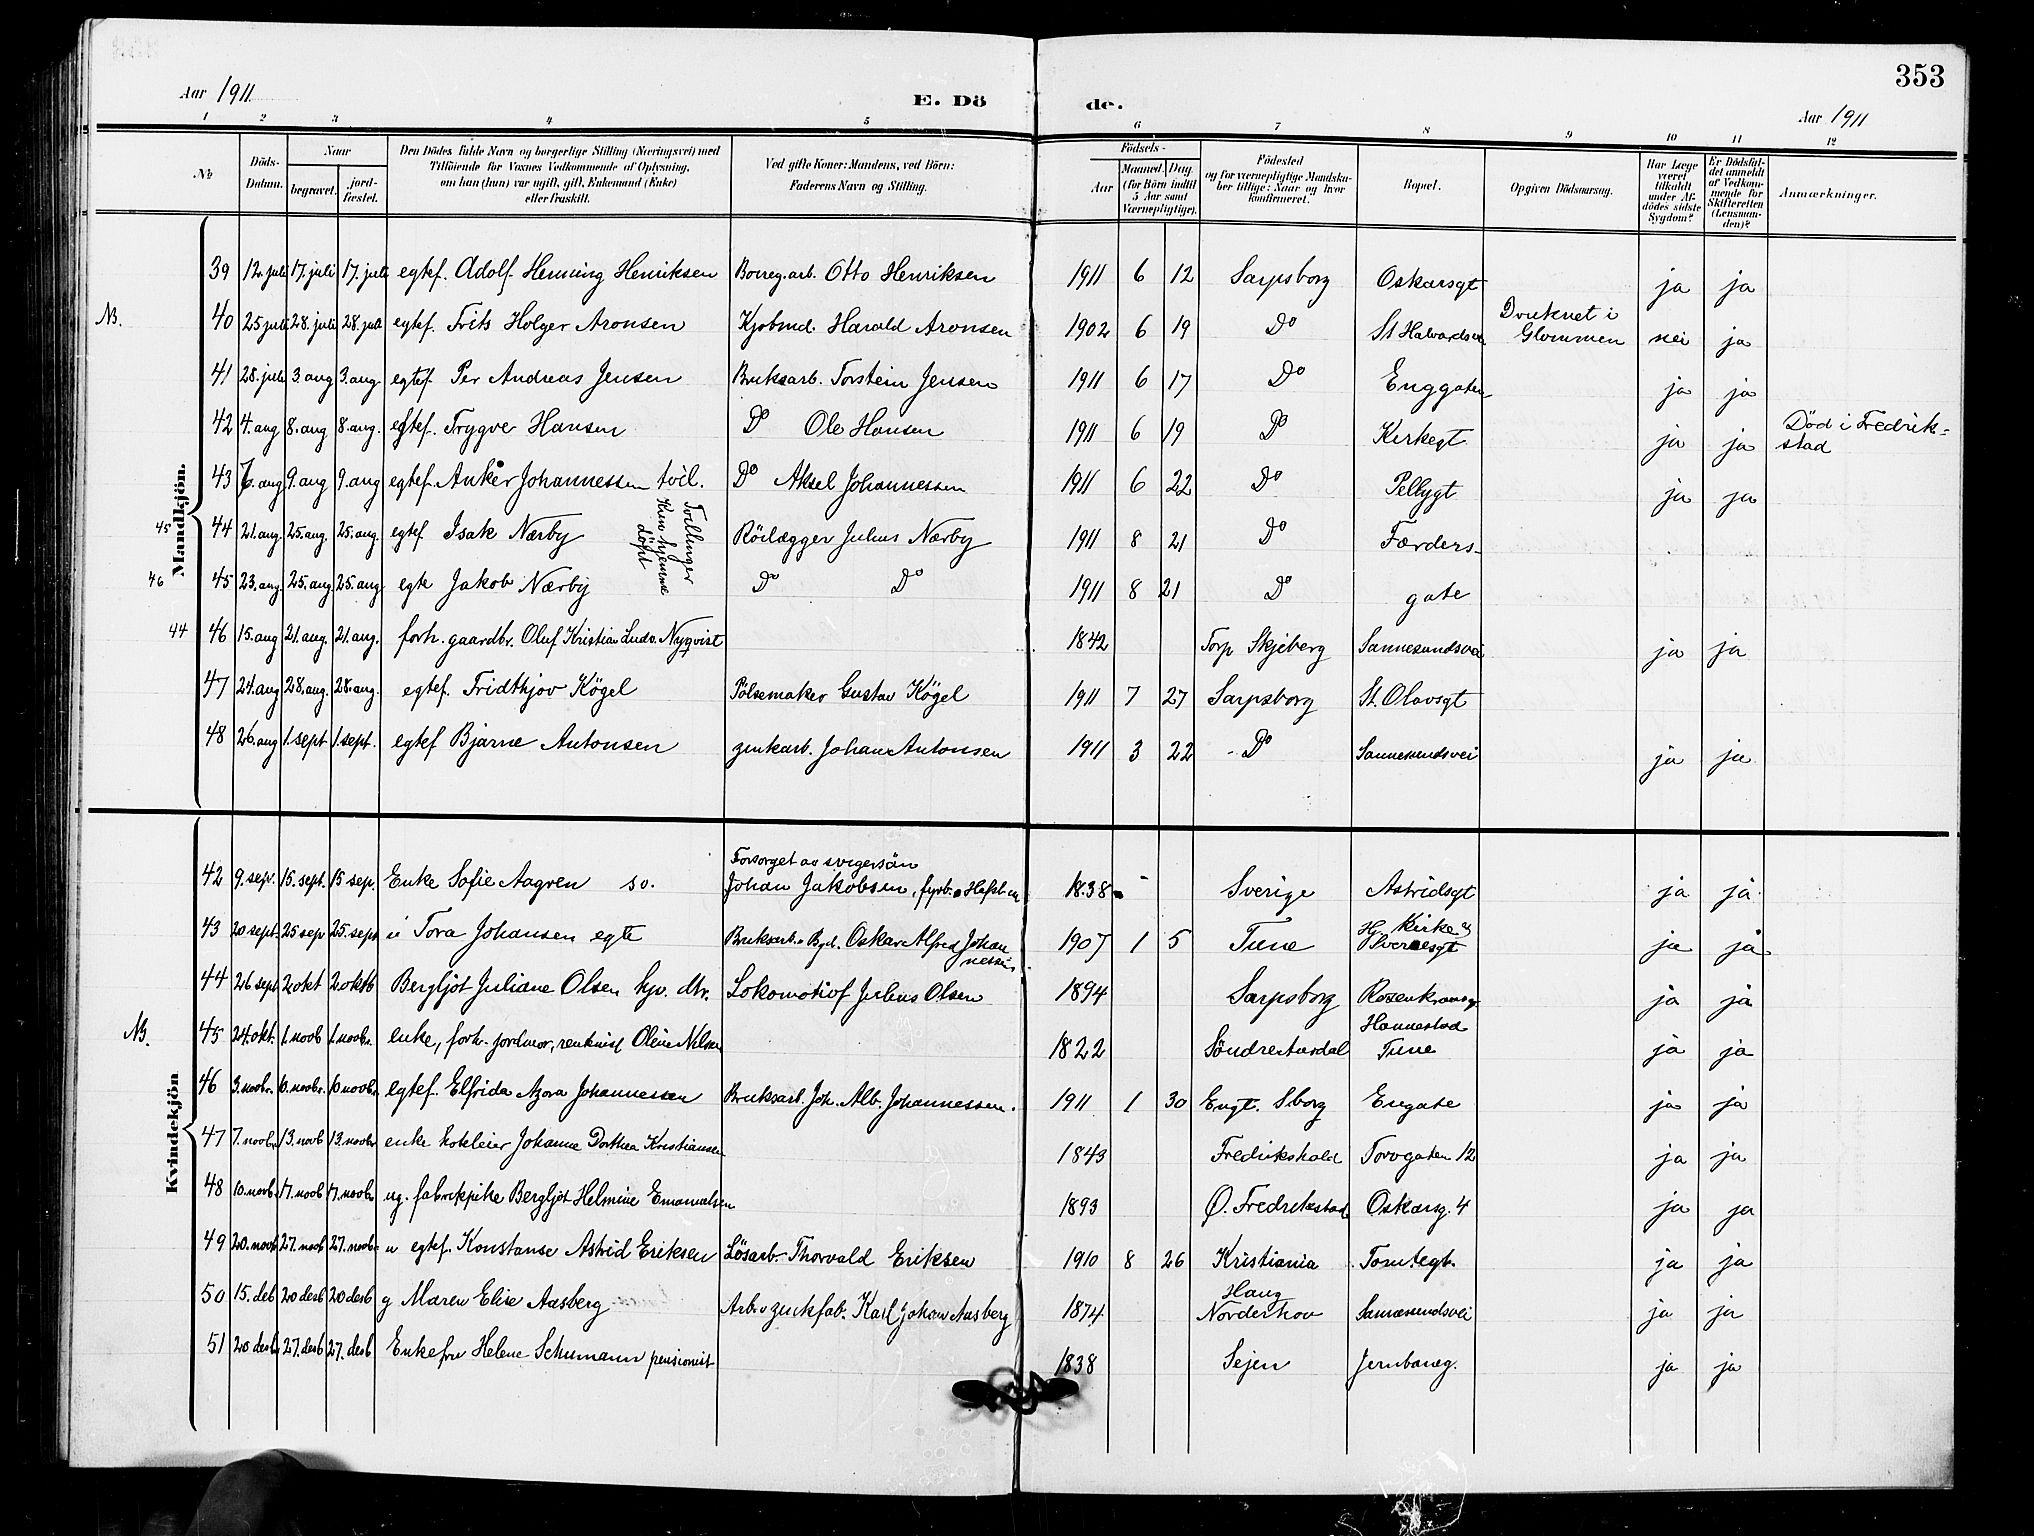 353
Aar 1911
E. Döde.
Aar 1911
1 2 3 4 5 6 7 8 9 10 11 12
No
Döds-Datum.
Naar
begravet.
jord-fæstet.
Den Dödes fulde Navn og borgerlige Stilling (Næringsvei) med
Tilföiende for Voxnes Vedkommende af Oplysning,
om han (hun) var ugift, gift, Enkemand (Enke)
eller fraskilt.
Ved gifte Koner: Mandens, ved Börn:
Faderens Navn og Stilling.
Födsels-
Aar
Maaned. Dag.
(for Börn indtil
5 Aar samt
Værnepligtige).
Födested
og for værnepligtige Mandska-
ber tillige: Naar og hvor
konfirmeret.
Bopæl.
Opgiven Dödsaarsag.
Har Læge
været
tilkaldt
under Af-
dödes sidste
Sygdom?
Er Dödsfal-
det anmeldt
af Vedkom-
mende for
Skifteretten
(Lensman-
den)?
Anmærkninger.
Mandkjön.
39 12. juli 17. juli 17. juli egtef. Adolf Henning Henriksen Borreg.arb. Otto Henriksen 1911 6 12 Sarpsborg Oskarsgt ja ja
NB. 40 25 juli 28. juli 28. juli egtef. Frits Holger Aronsen Kjøbmd. Harald Aronsen 1902 6 19 Do St Halvardsv Druknet i Glommen nei ja
41 28. juli 3. aug 3. aug. egtef. Per Andreas Jensen Bruksarb. Torstein Jensen 1911 6 17 Do Enggaten ja ja
42 4. aug 8. aug 8. aug. egtef. Trygve Hansen Do Ole Hansen 1911 6 19 Do Kirkegt ja ja Död i Fredrik=stad
43 6. aug 9. aug 9. aug egtef. Anker Johannessen tvil. Do Aksel Johannessen 1911 6 22 Do Pellygt ja ja
45 44 21. aug. 25. aug. 25. aug. egtef Isak Nærby Rörlægger Julius Nærby 1911 8 21 Do Færders-
Tvillinger
Kun hjemme
döpt
46 45 23. aug. 25. aug 25. aug. egte Jakob Nærby Do Do 1911 8 21 Do gate
44 46 15. aug 21. aug. 21. aug. forh. gaardbr. Oluf Kristian Ludv. Nyqvist 1842 Torp Skjeberg Sannesundsvei ja ja
47 24. aug 28. aug. 28. aug. egtef. Fridthjov Kögel Pölsemaker Gustav Kögel 1911 7 27 Sarpsborg St. Olavsgt
48 26. aug 1. sept 1. sept. egtef Bjarne Antonsen zinkarb. Johan Antonsen 1911 3 22 Do Sannesundsvei ja ja
Kvindekjön
42 9. sep. 15. sept. 15 sep. Enke Sofie Aagren so. Forsorget av svigersön Johan Jakobsen, fyrb. Hafsl. 1838 Sverige Astridsgt ja ja
43 20 sept. 25 sep 25. sept Tora Johansen egte Bruksarb. Oskar Alfred Johannessen 1907 1 5 Tune Hj Kirke & Sverresgt ja ja
44 26 sept 2 okt 2 oktb Bergljot Juliane Olsen hjv. dtr. Lokomotivf Julius Olsen 1894 Sarpsborg Rosenkransg ja ja
NB. 45 24. okt. 1. novb 1. novbr. enke, forh. jordmor, Oline Nilsen 1822 Söndre Aurdal Hannestad Tune ja ja
46 3. novbr. 10. novbr. 10 novbr. egtef. Elfrida Azora Johannessen Bruksarb. Joh. Alb. Johannessen. 1911 1 30 Engt. Sborg Engate ja ja
47 7. novbr. 13. novb 13. novbr enke hotleier Johanne Dorthea Kristiansen 1843 Fredrikshald Torvgaten 12 ja ja
48 10. novb. 17. novb 17. novbr ug. fabrikpike Bergljot Helmine Emanuelsen 1893 Ø. Fredrikstad Oskarsg. 4 ja ja
49 20. novb 27. novb 27. novbr u egtef. Konstanse Astrid Eriksen Løsarb. Thorvald Eriksen 1910 8 26 Kristiania Tomtegt. ja ja
50 15. deb 20 desb 20 desb g Maren Elise Aasberg Arb. v zinkfab. Karl Johan Aasberg 1874 Haug Norderhov Sannesundsvei ja ja
51 20 desb. 27. desb 27. desb Enkefru Helene Schumann pensionist 1838 Sejen Jernbaneg. ja ja